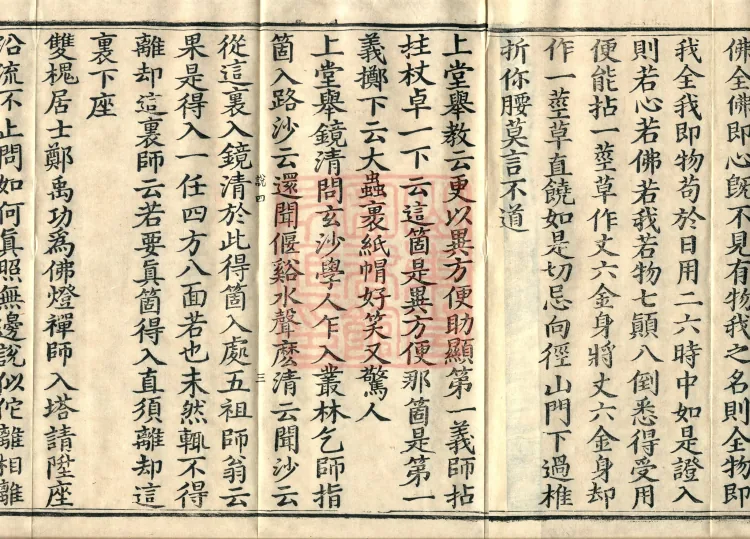 佛全佛即心既不見有物我之名則全物即
我全我即物苟於日用二六時中如是證入
則若心若佛若我若物七顚八倒悉得受用
便能拈一莖草作丈六金身將丈六金身却
作一莖草直饒如是切忌向徑山門下過椎
折你腰莫言不道
上堂舉教云更以異方便助顯第一義師拈
拄杖卓一下云這箇是異方便那箇是第一
義擲下云大蟲裹紙帽好笑又驚人
上堂舉鏡清問玄沙學人乍入叢林乞師指
箇入路沙云還聞偃谿水聲麼清云聞沙云
說四
三
從這裏入鏡清於此得箇入處五祖師翁云
果是得入一任四方八面若也未然輒不得
離却這裏師云若要眞箇得入直須離却這
裏下座
雙槐居士鄭禹功爲佛燈禪師入塔請陞座
沿流不止問如何眞照無邊說似佗離相離